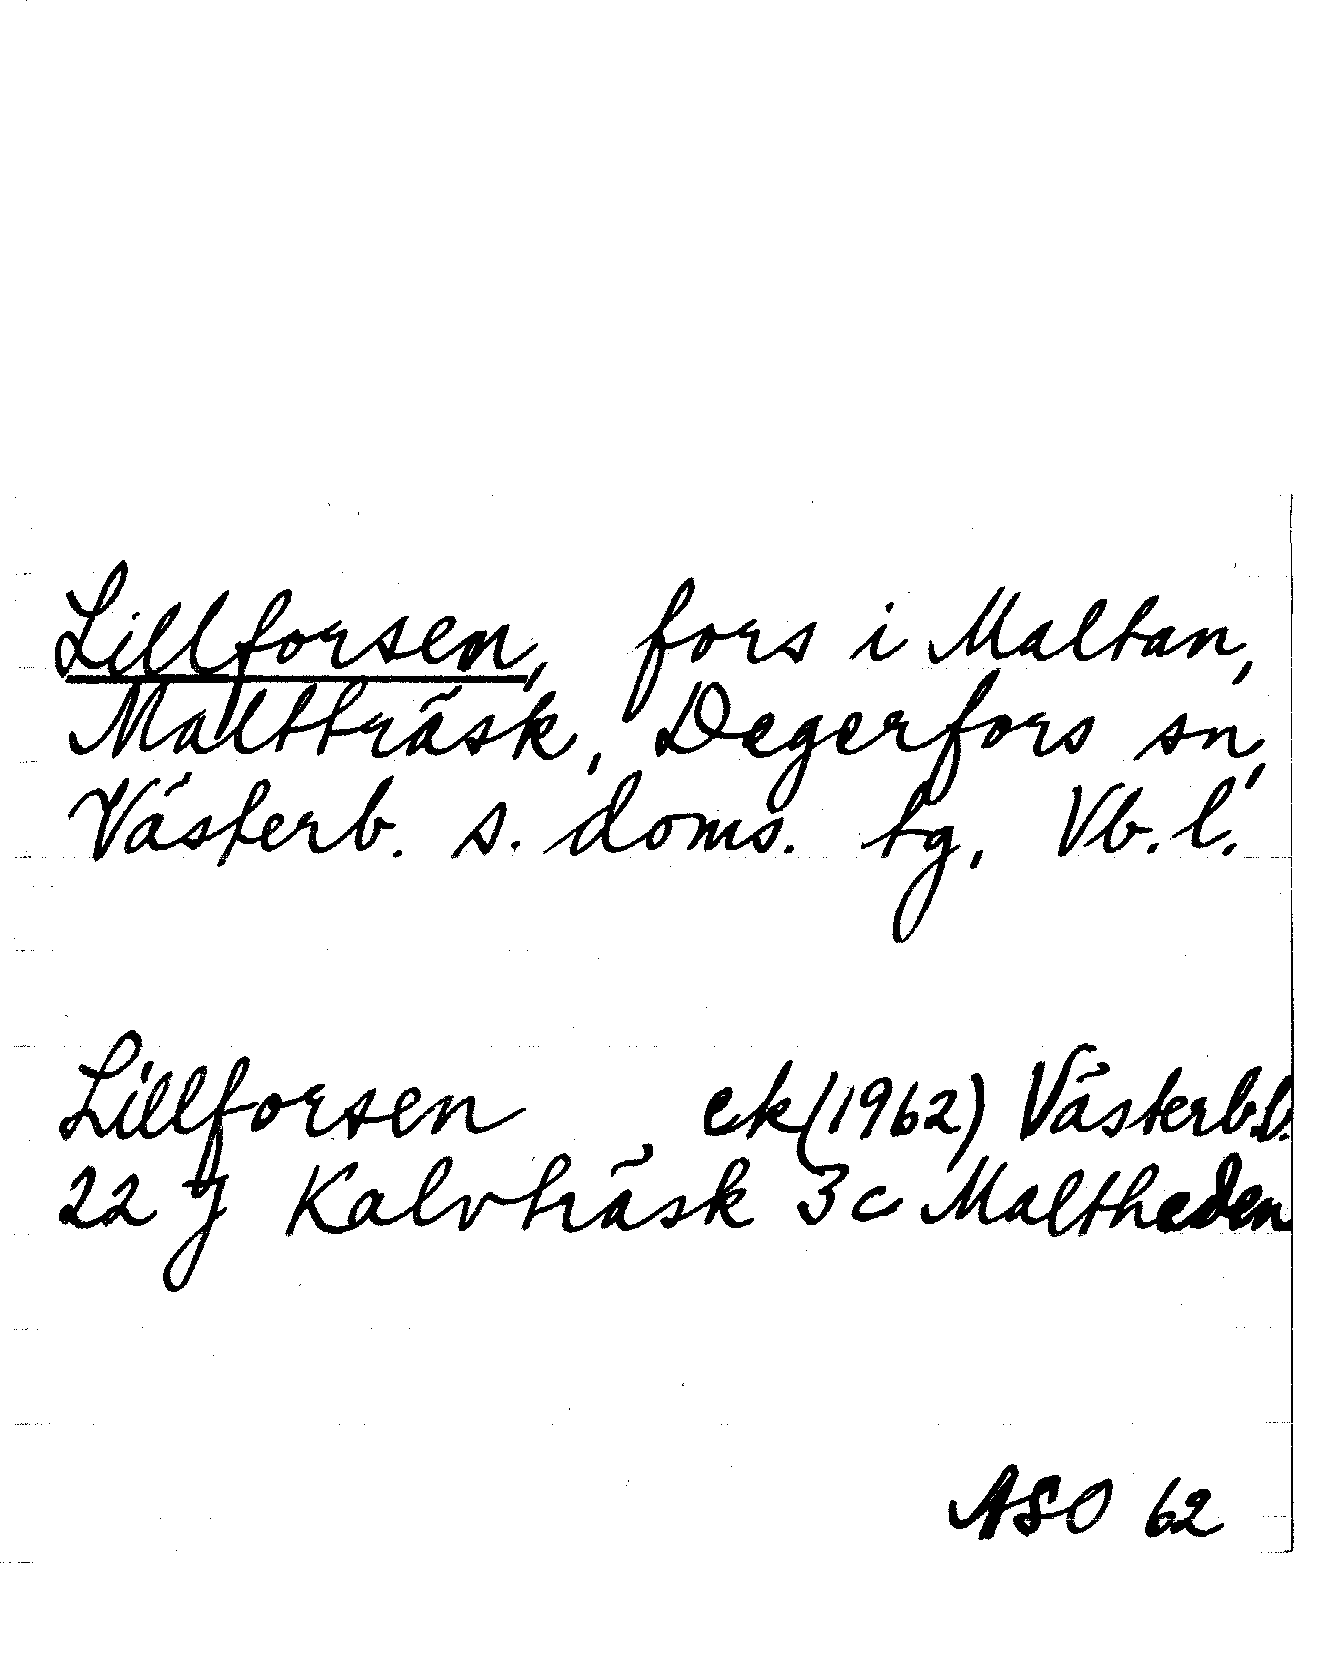 Lillforsen, fors i Maltan,
Maltträsk, Degerfors sn,
Västerb. s. doms. tg, Vb. l.
Lillforsen ek (1962) Västerb.l.
22 J Kalvträsk 3c Maltheden
ASO 62